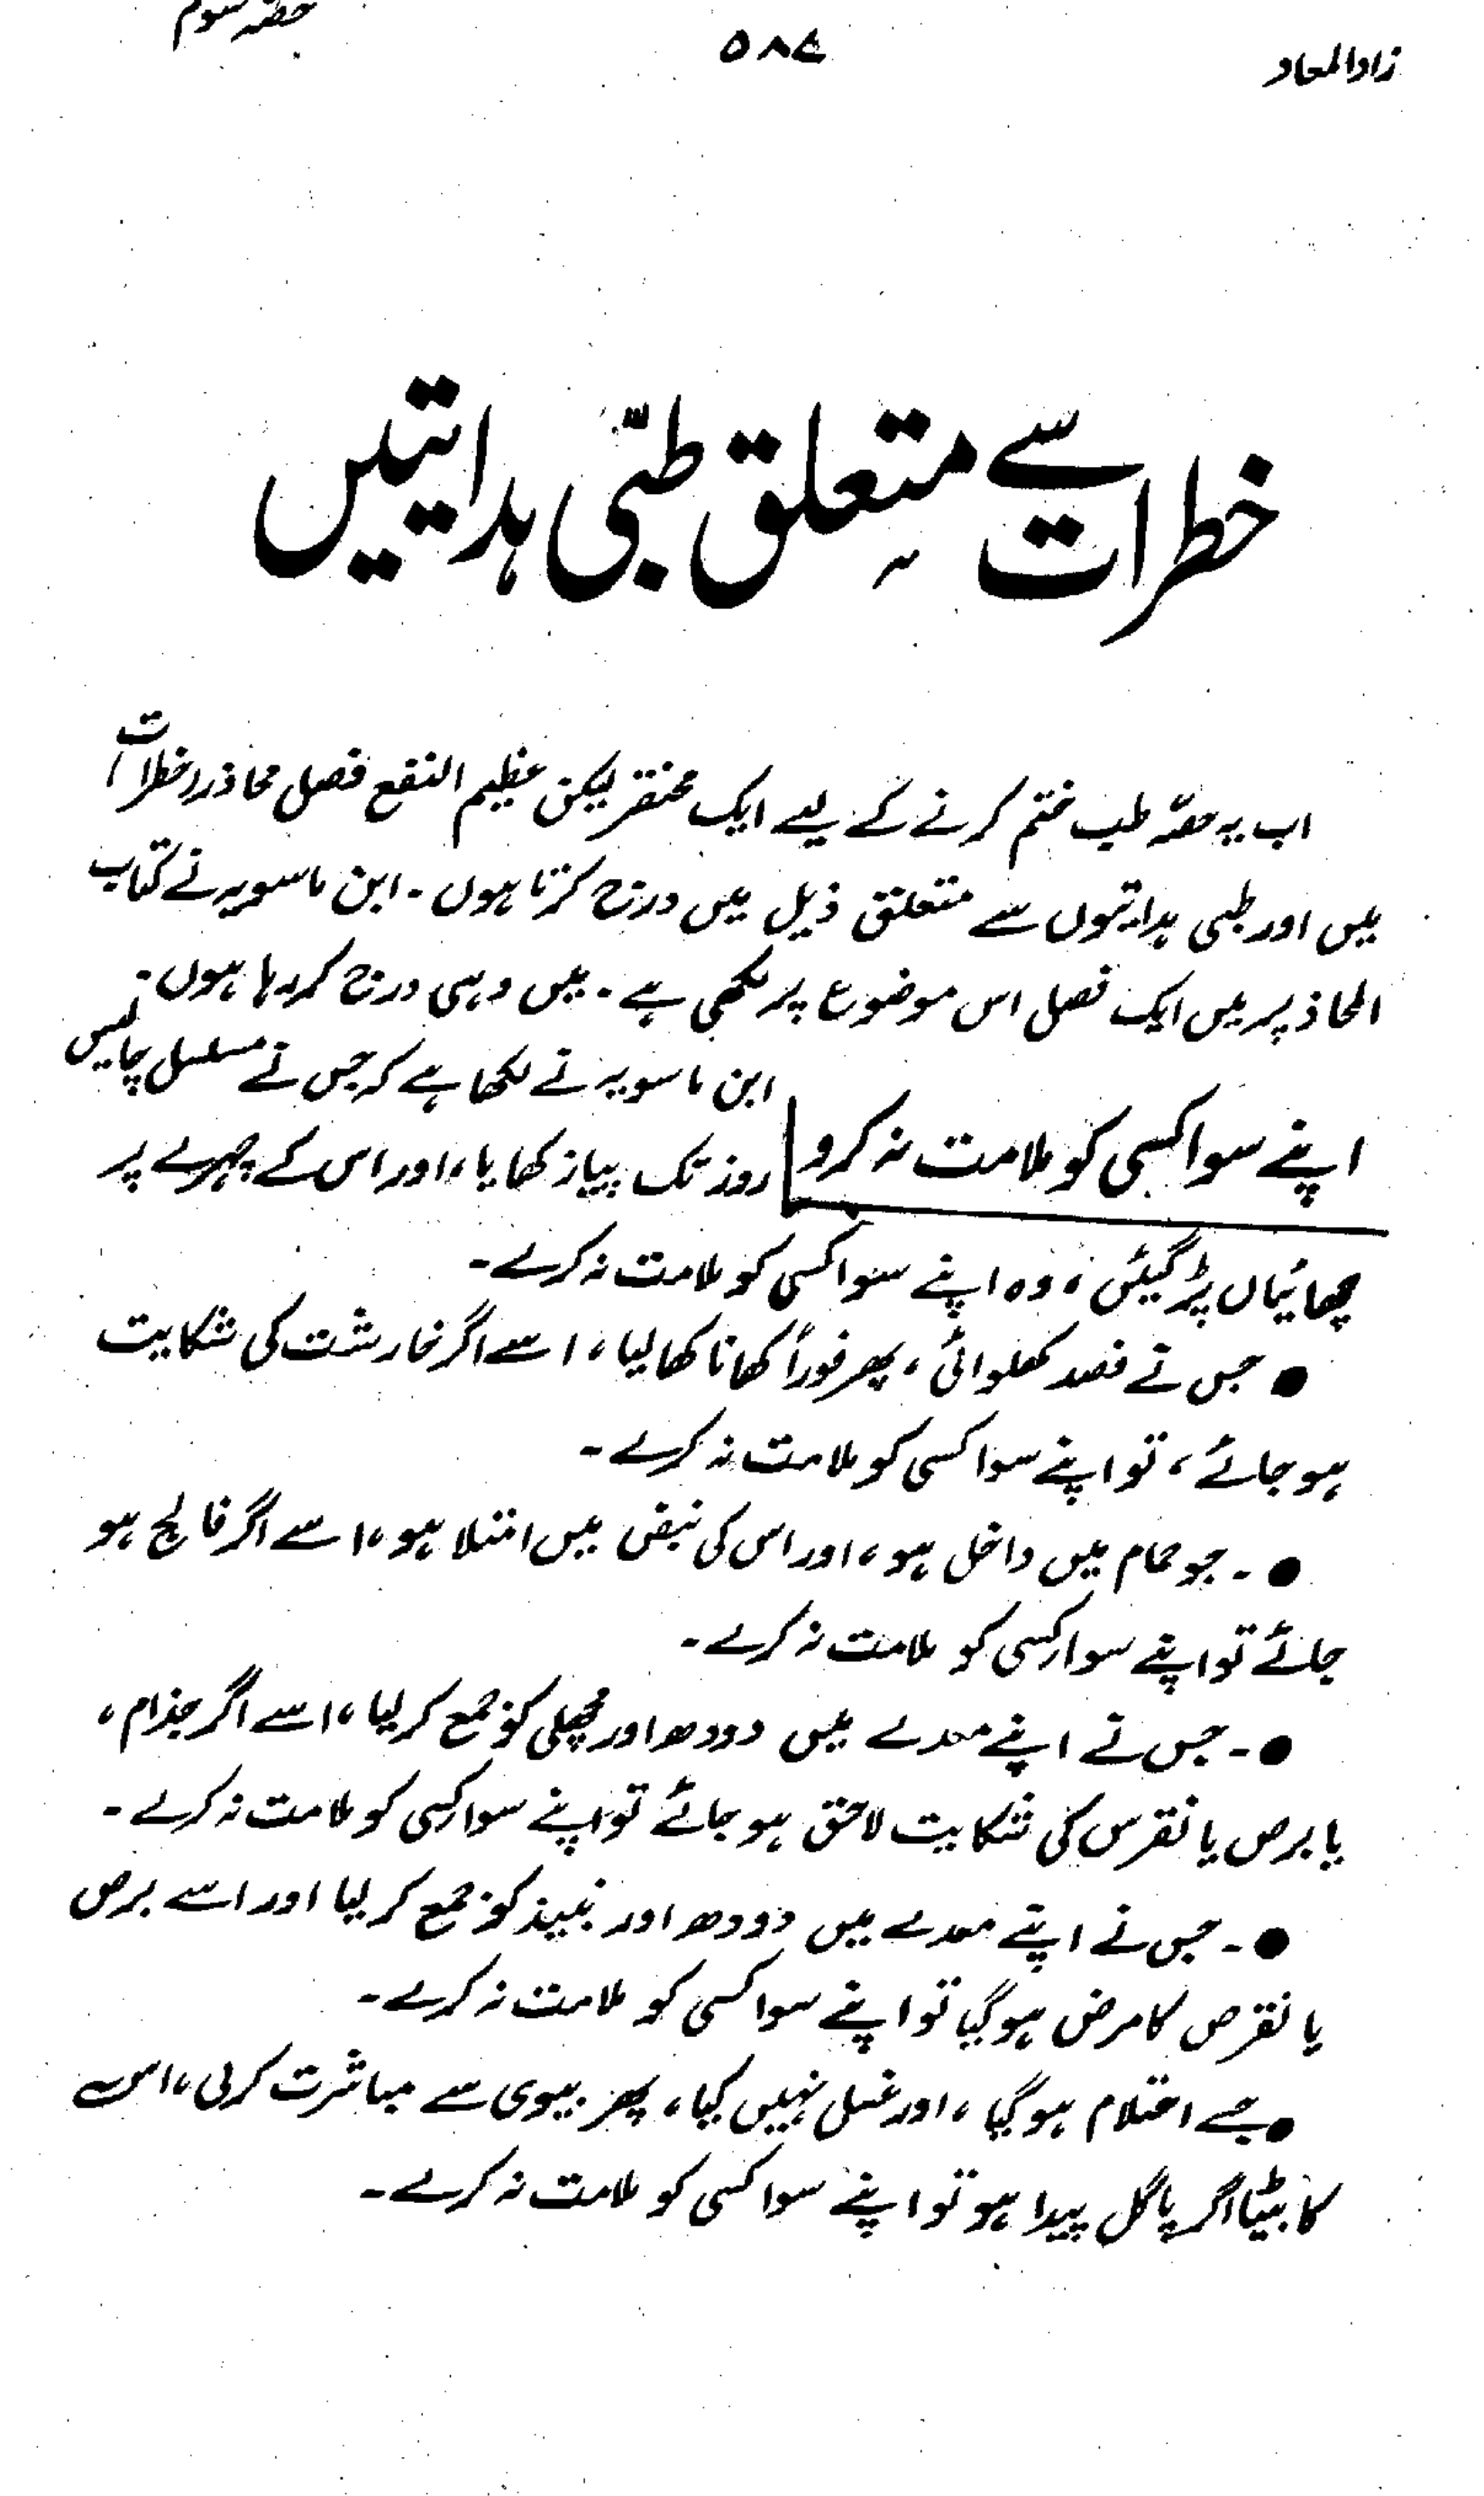 زاد المعاد
۵۸۷
حصّہ سوم
خطرات سے متعلق طبّی ہدایتیں
اب یہ حصّہ طب ختم کرنے کے لیے ایک مختصر لیکن عظیم النفع فصل محاذر (خطرات)
میں اور طبی ہدایتوں سے متعلق ذیل میں درج کرتا ہوں۔ ابن ماسویہ نے کتاب
المحاذیر میں ایک فصل اس موضوع پر لکھی ہے۔ میں وہی درج کر رہا ہوں۔
اپنے سوا کسی کو ملامت نہ کرو
ابن ماسویہ نے لکھا ہے کہ جس نے مسلسل چالیس
روز تک پیاز کھایا، اور اس کے چہرے پر
چھائیاں پڑ گئیں، وہ اپنے سوا کسی کو ملامت نہ کرے۔
● جس نے فصد کھلوائی، پھر فوراً کھانا کھا لیا، اسے اگر خارشت کی شکایت
ہو جائے، تو اپنے سوا کسی کو ملامت نہ کرے۔
●۔ جو حمام میں داخل ہو، اور اس کی نبض میں امتلا ہو، اسے اگر فالج ہو
جائے تو اپنے سوا کسی کو ملامت نہ کرے۔
●۔ جس نے اپنے معدے میں دودھ اور مچھلی کو جمع کر لیا، اسے اگر جذام،
یا برص یا نقرس کی شکایت لاحق ہو جائے تو اپنے سوا کسی کو ملامت نہ کرے۔
●۔ جس نے اپنے معدے میں دودھ اور نبیذ کو جمع کر لیا اور اسے برص
یا نقرص کا مرض ہو گیا تو اپنے سوا کسی کو ملامت نہ کرے۔
● جسے احتلام ہو گیا، اور غسل نہیں کیا، پھر بیوی سے مباشرت کر لی، اس
کا بیٹا اگر پاگل پیدا ہو تو اپنے سوا کسی کو ملامت نہ کرے۔